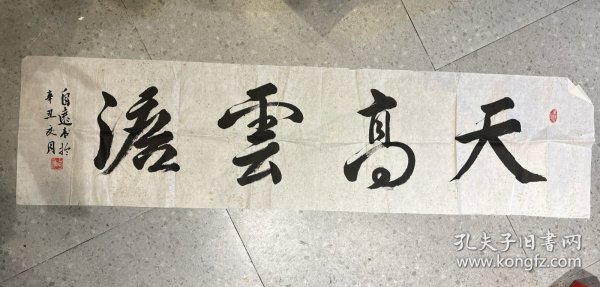 天高雲澹
自遠書於
辛丑夏月
孔夫子旧书网
www.kongfz.com